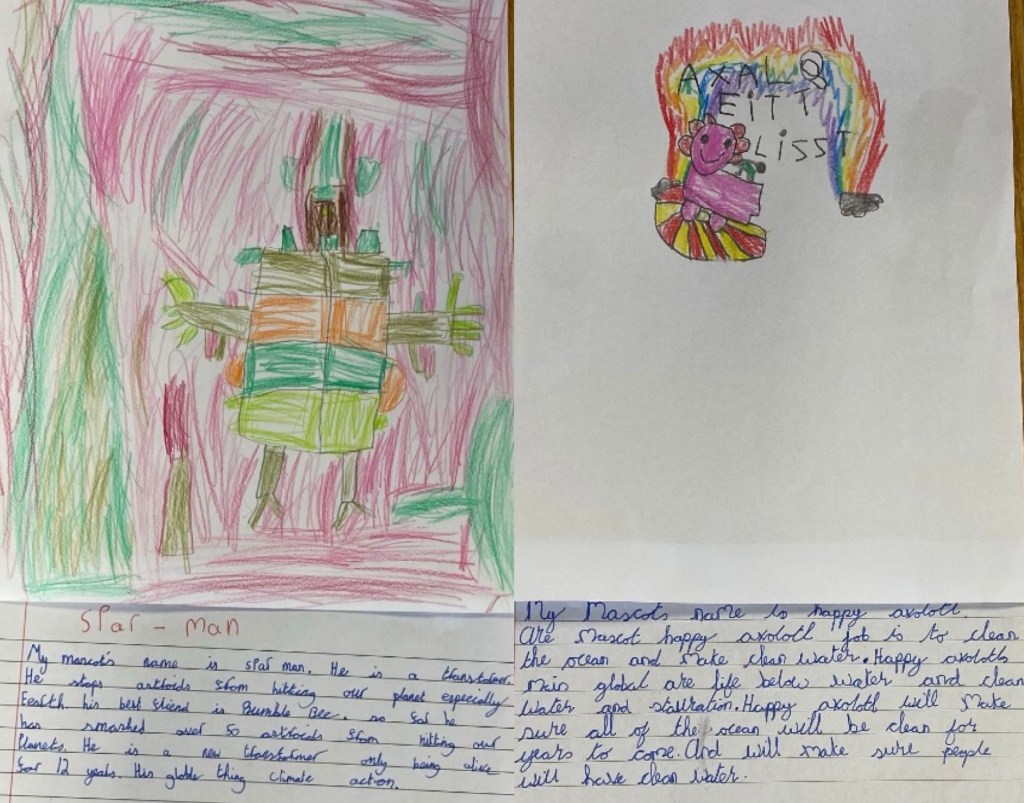 SPar - Man
My mascot's name is spar man. He is a transformer.
He stops astroids from hitting our planet especially
Earth. his best friend is Bumble Bee. so far he
has smashed over 50 astroids from hitting our
Planets. He is a new transformer only being alive
for 12 years. His globle thing climate action.
AXALO
EiTT
LiSST
My Mascots name is happy axolotl.
are Mascot happy axolotl job is to clean
the ocean and make clean water. Happy axolotls
main global are life below water and clean
water and sisitration. Happy axolotl will make
sure all of the ocean will be clean for
years to come. And will make sure people
will have clean water.